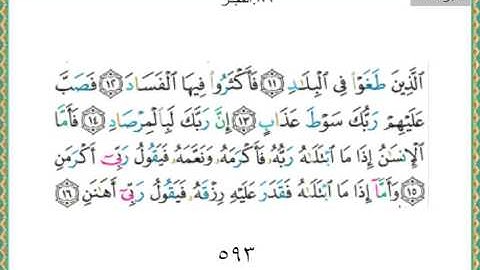 ٨٩. الفجر
الَّذِينَ طَغَوْا۟ فِى الْبِلَـٰدِ ١١ فَأَكْثَرُوا۟ فِيهَا الْفَسَادَ ١٢ فَصَبَّ
عَلَيْهِمْ رَبُّكَ سَوْطَ عَذَابٍ ١٣ إِنَّ رَبَّكَ لَبِالْمِرْصَادِ ١٤ فَأَمَّا
الْإِنسَـٰنُ إِذَا مَا ابْتَلَـٰهُ رَبُّهُۥ فَأَكْرَمَهُۥ وَنَعَّمَهُۥ فَيَقُولُ رَبِّىٓ أَكْرَمَنِ
١٥ وَأَمَّآ إِذَا مَا ابْتَلَـٰهُ فَقَدَرَ عَلَيْهِ رِزْقَهُۥ فَيَقُولُ رَبِّىٓ أَهَـٰنَنِ ١٦
٥٩٣